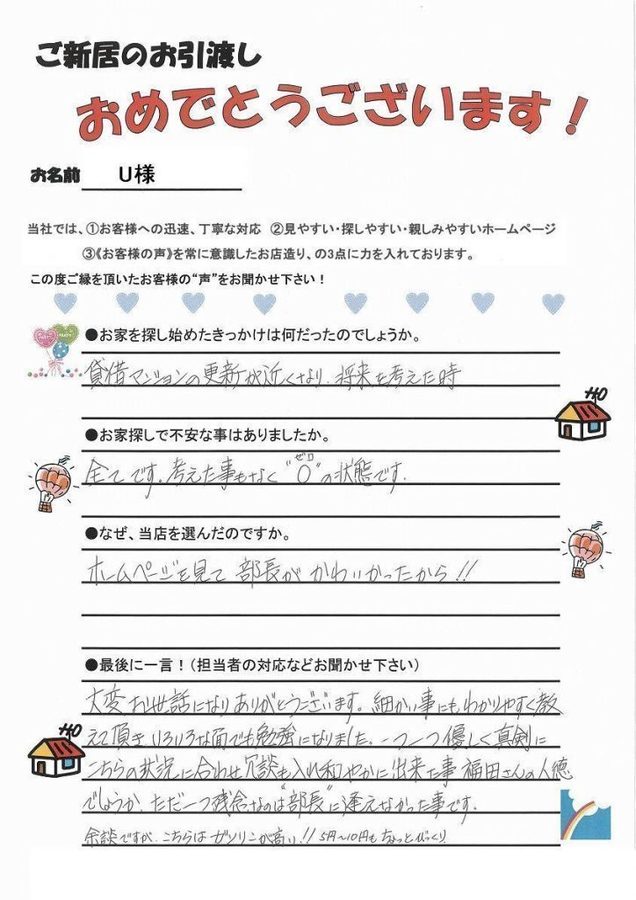 ご新居のお引渡し
おめでとうございます！
お名前 U様
当社では、①お客様への迅速、丁寧な対応 ②見やすい・探しやすい・親しみやすいホームページ
③《お客様の声》を常に意識したお店造り、の3点に力を入れております。
この度ご縁を頂いたお客様の“声”をお聞かせ下さい！
●お家を探し始めたきっかけは何だったのでしょうか。
賃借マンションの更新が近くなり、将来を考えた時
●お家探しで不安な事はありましたか。
全てです。考えた事もなく“0”の状態です。
ゼロ
●なぜ、当店を選んだのですか。
ホームページを見て 部長が かわいかったから!!
●最後に一言！（担当者の対応などお聞かせ下さい）
大変お世話になりありがとうございます。細かい事にもわかりやすく教
えて頂き いろいろな面でも勉強になりました。一つ一つ優しく真剣に
こちらの状況に合わせ冗談も入れ和やかに出来た事 福田さんの人徳
でしょうか、ただ一つ残念なのは“部長”に逢えなかった事です。
余談ですが、こちらは ガソリンが高い!! 5円〜10円も ちょっとびっくり